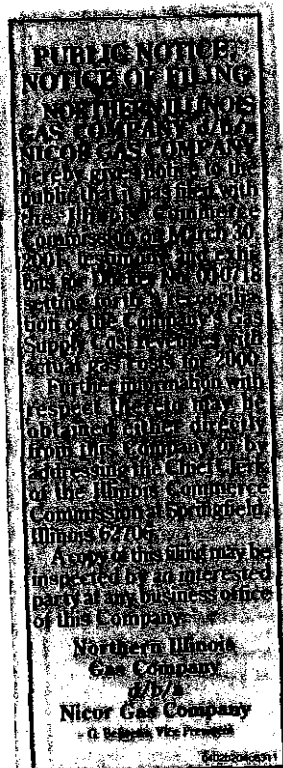 PUBLIC NOTICE
NOTICE OF FILING
NORTHERN ILLINOIS
GAS COMPANY d/b/a
NICOR GAS COMPANY
hereby gives notice to the
public that it has filed with
the Illinois Commerce
Commission on March 30,
2001, testimony and exhi-
bits for Docket No.
setting forth a reconcilia-
tion of the Company's Gas
Supply Cost revenues with
actual gas costs for 2000.
Further information with
respect thereto may be
obtained either directly
from this Company or by
addressing the Chief Clerk
of the Illinois Commerce
Commission at Springfield,
Illinois 62706.
A copy of this filing may be
inspected by an interested
party at any business office
of this Company.
Northern Illinois
Gas Company
d/b/a
Nicor Gas Company
Vice President